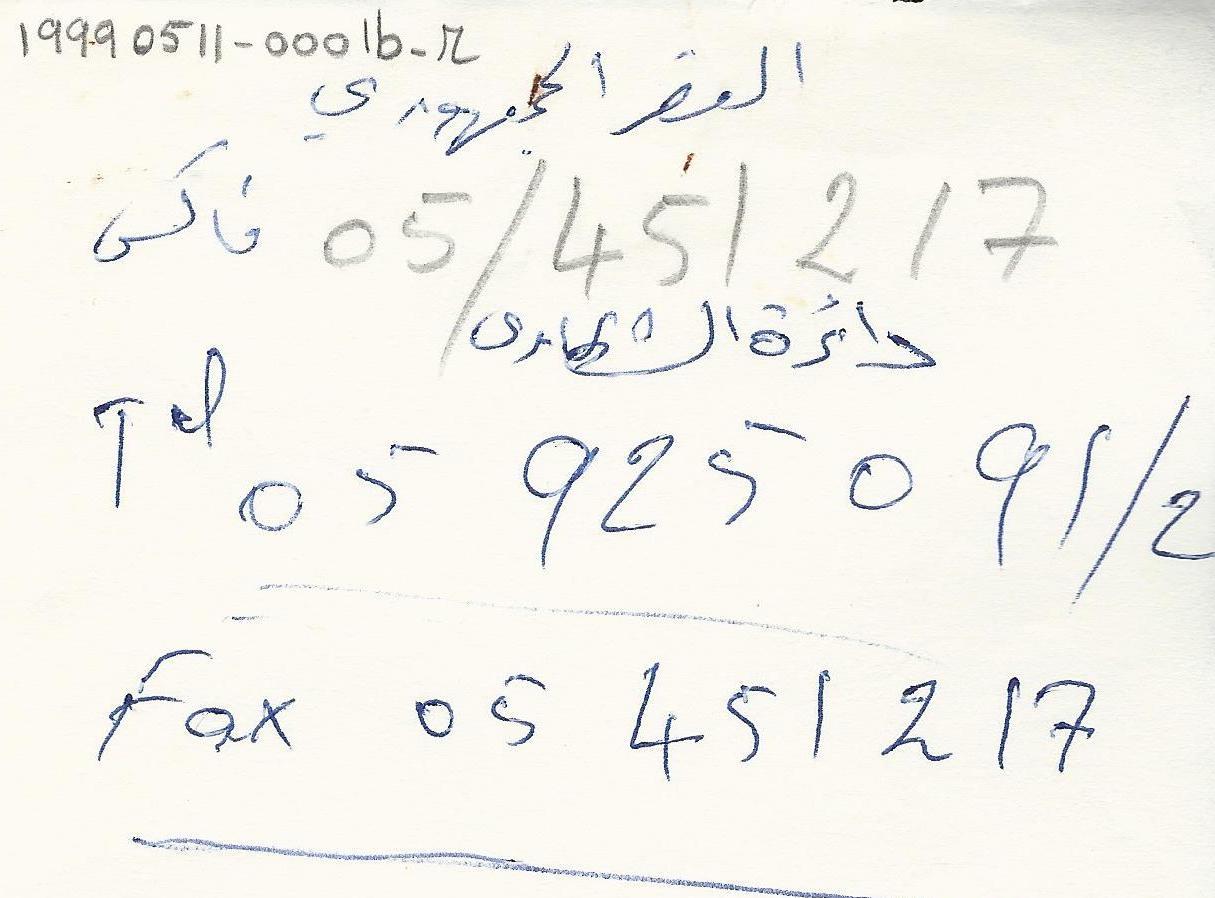 19990511-0001b-r
القصر الجمهوري
فاكس 05/451217
دائرة
Tel 05 925091/2
Fax 05 451217